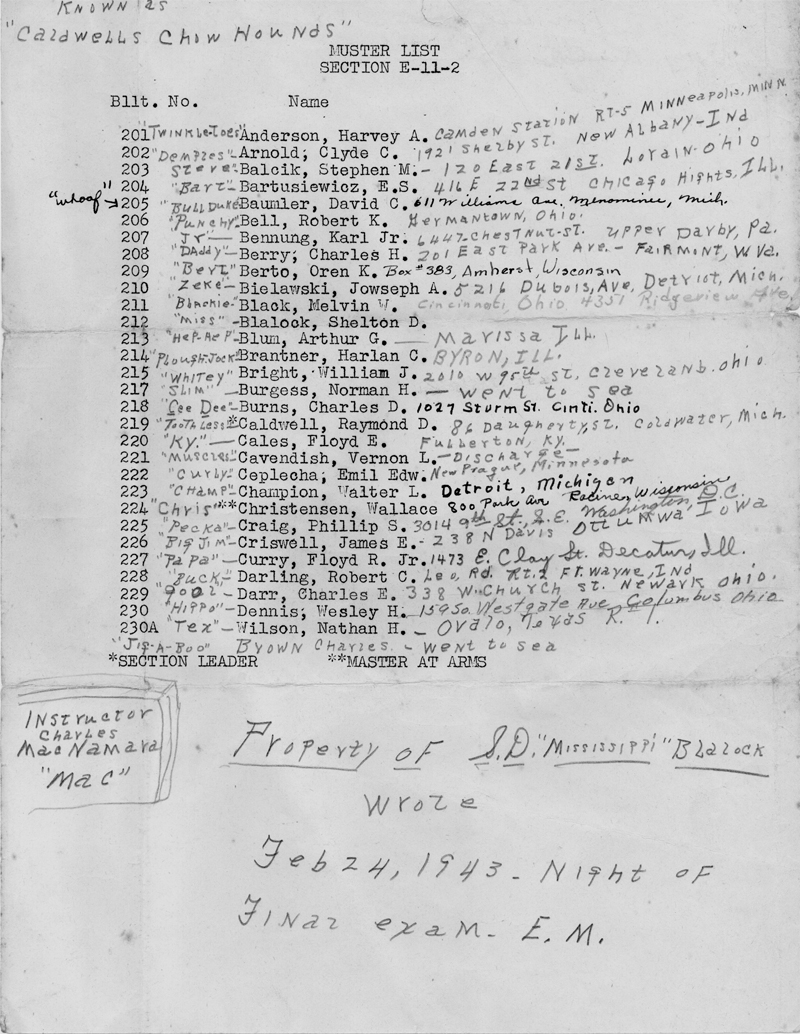 KNOWN as
"CaldWells Chow HouNds"
MUSTER LIST
SECTION E-11-2
Bllt. No. Name
201 "TWINKLE-TOES" Anderson, Harvey A. Camden Station RT-5 MINNeapolis, MINN
202 "Demples"- Arnold, Clyde C. 1921 Shelby St. New Albany-Ind
203 Steve- Balcik, Stephen M. - 120 East 21st. Lorain-Ohio
204 "Bart"- Bartusiewicz, E.S. 416 E 22nd St Chicago Hights, ILL.
"Whoof" 205 "BULL DUKE" Baumler, David C. 611 Williams Ave. Menominee, Mich.
206 "Punchy" Bell, Robert K. Germantown, Ohio.
207 Jr- Bennung, Karl Jr. 6447-Chestnut-St. Upper Darby, Pa.
208 "DAddy"- Berry, Charles H. 201 East Park Ave.- FAIRMONT, W Va.
209 "Bert" Berto, Oren K. Box #383, Amherst, Wisconsin
210 "Zeke"- Bielawski, Jowseph A. 5216 Dubois, Ave, Detroit, Mich.
211 "Blackie- Black, Melvin W. Cincinnati, Ohio 4351 Ridgeview Ave.
212 "Miss"- Blalock, Shelton D.
213 "Hep-Hep"- Blum, Arthur G. — Marissa ILL.
214 "Plough-Jock" Brantner, Harlan C. BYRON, ILL.
215 "WHITEY" Bright, William J. 2010 W 95th St, Cleveland. Ohio
217 "SLIM"- Burgess, Norman H. - WENT to sea
218 "Cee Dee"- Burns, Charles D. 1027 Sturm St. Cinti. Ohio
219 "ToothLess" * Caldwell, Raymond D. 86 Daugherty, St. Coldwater, Mich.
220 "Ky."- Cales, Floyd E. Fullerton, Ky.
221 "Muscles" Cavendish, Vernon L. - Discharge-
222 "Curly- Ceplecha, Emil Edw. New Prague, Minnesota
223 "CHAMP"- Champion, Walter L. Detroit, Michigan
224 "Chris" ** Christensen, Wallace 800 Park Ave Racine, Wisconsin
225 "Pecka"- Craig, Phillip S. 3014 9th St, S.E. Washington, D.C.
226 "Big Jim"- Criswell, James E. - 238 N Davis Ottumwa, Iowa
227 "PaPa"- Curry, Floyd R. Jr. 1473 E. Clay St. Decatur, Ill.
228 "Buck,- Darling, Robert C. Leo, Rd. Rt. 2 FT. WAYNE, IND
229 - Darr, Charles E. 338 W. Church St. Newark Ohio.
230 "HIPPO"- Dennis, Wesley H. 1595o. Westgate Ave Columbus Ohio
230A "Tex"- Wilson, Nathan H. - Ovalo, Texas R. 1.
"Jig-A-Boo" Brown Charles. - Went to sea
*SECTION LEADER **MASTER AT ARMS
INStructor
Charles
MacNamara
"Mac"
Property of S.D. "Mississippi" Blalock
Wrote
Feb 24, 1943 - Night of
Final exam - E.M.